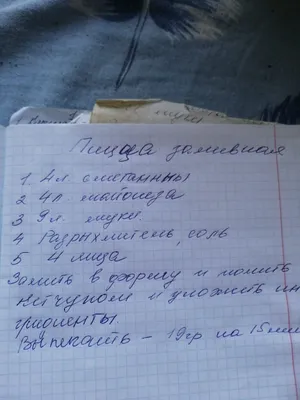 Пицца заливная
1 4л. сметанны
2 4л майонеза
3 9л. муки
4 Разрыхлитель, соль
5 4 яйца
Залить в форму и полить
Кетчупом и уложить ин
гридиенты.
Выпекать - 19гр на 15мин